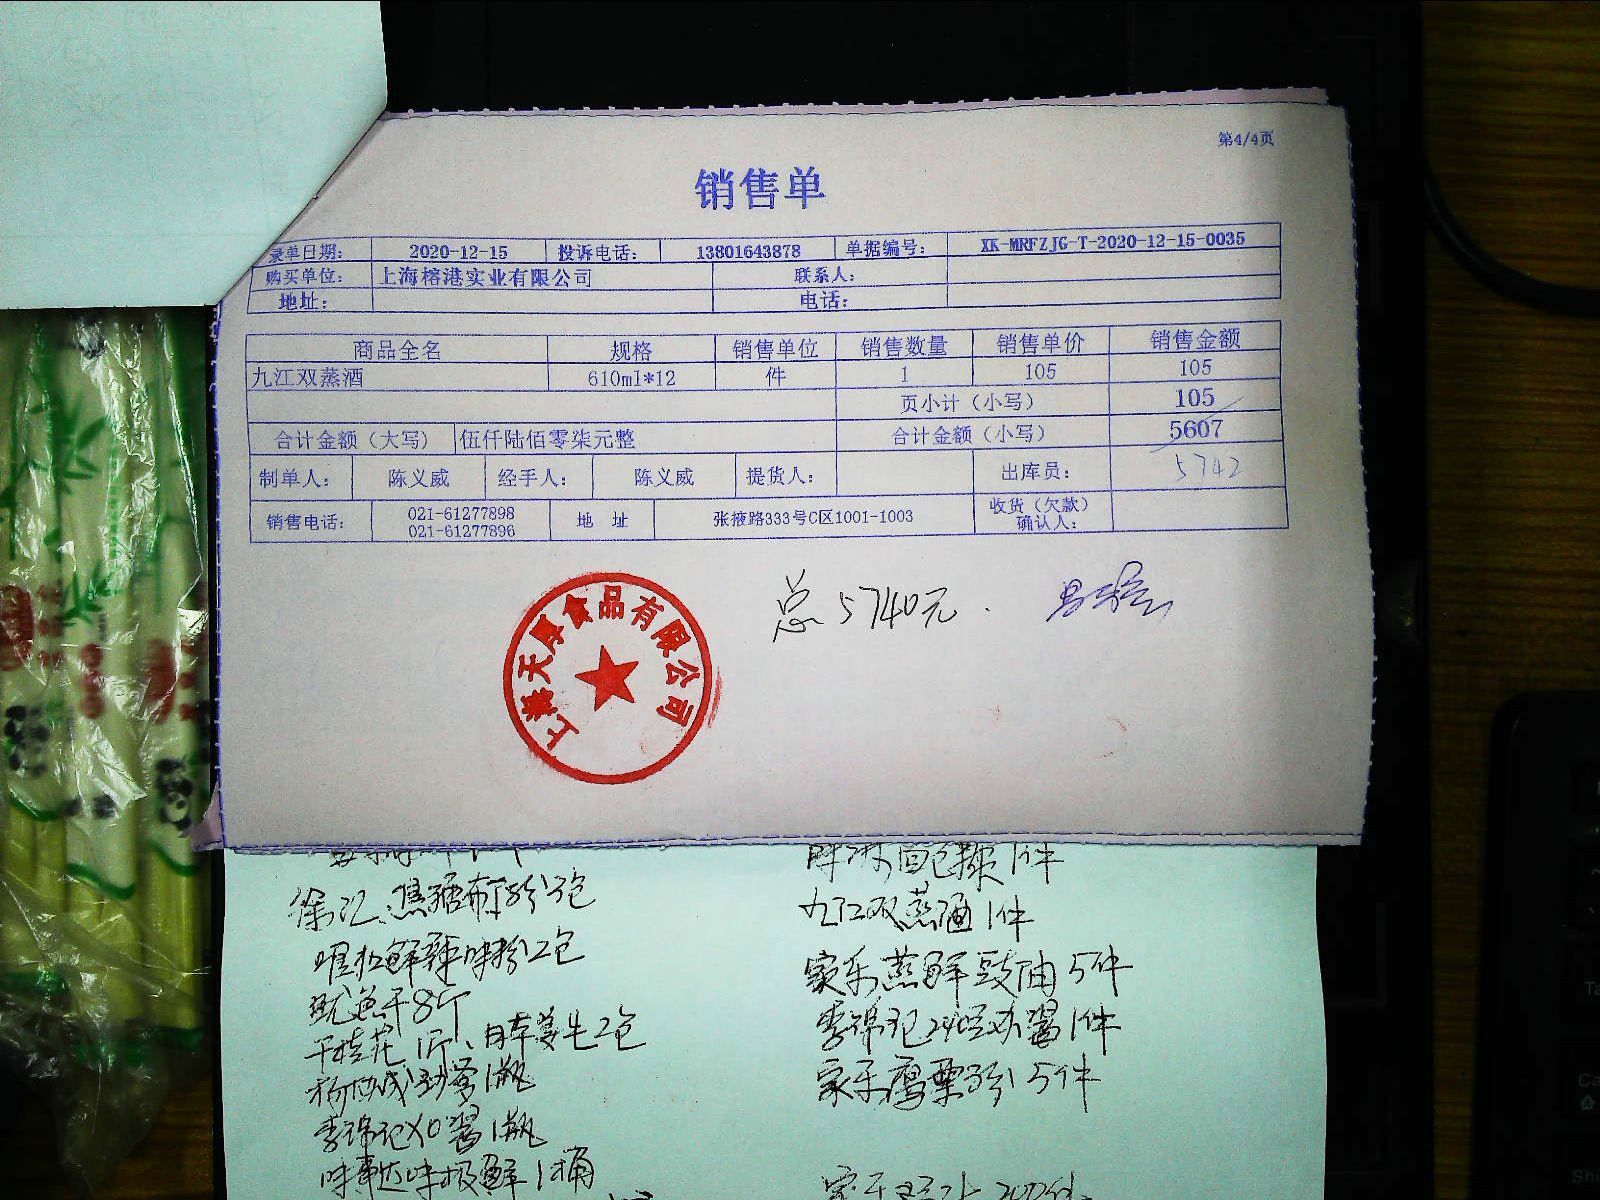 第4/4页
销售单
录单日期： 2020-12-15 投诉电话： 13801643878 单据编号： XK-MRFZJG-T-2020-12-15-0035
购买单位： 上海榕港实业有限公司 联系人：
地址： 电话：
商品全名 规格 销售单位 销售数量 销售单价 销售金额
九江双蒸酒 610ml*12 件 1 105 105
页小计（小写） 105
合计金额（大写） 伍仟陆佰零柒元整 合计金额（小写） 5607
制单人： 陈义威 经手人： 陈义威 提货人： 出库员： 5742
销售电话： 021-61277898 地 址 张掖路333号C区1001-1003 收货（欠款）
021-61277896 确认人：
总 5740元.
上海天厚食品有限公司
徐汇 焦糖布丁粉 3包
鲜辣味粉 2包
鱿鱼干 8斤
干桂花 1斤、
李锦记XO酱 1瓶
味事达味极鲜 1桶
面包糠 1件
九江双蒸酒 1件
家乐蒸鲜豉油 5件
家乐鹰粟粉 5件